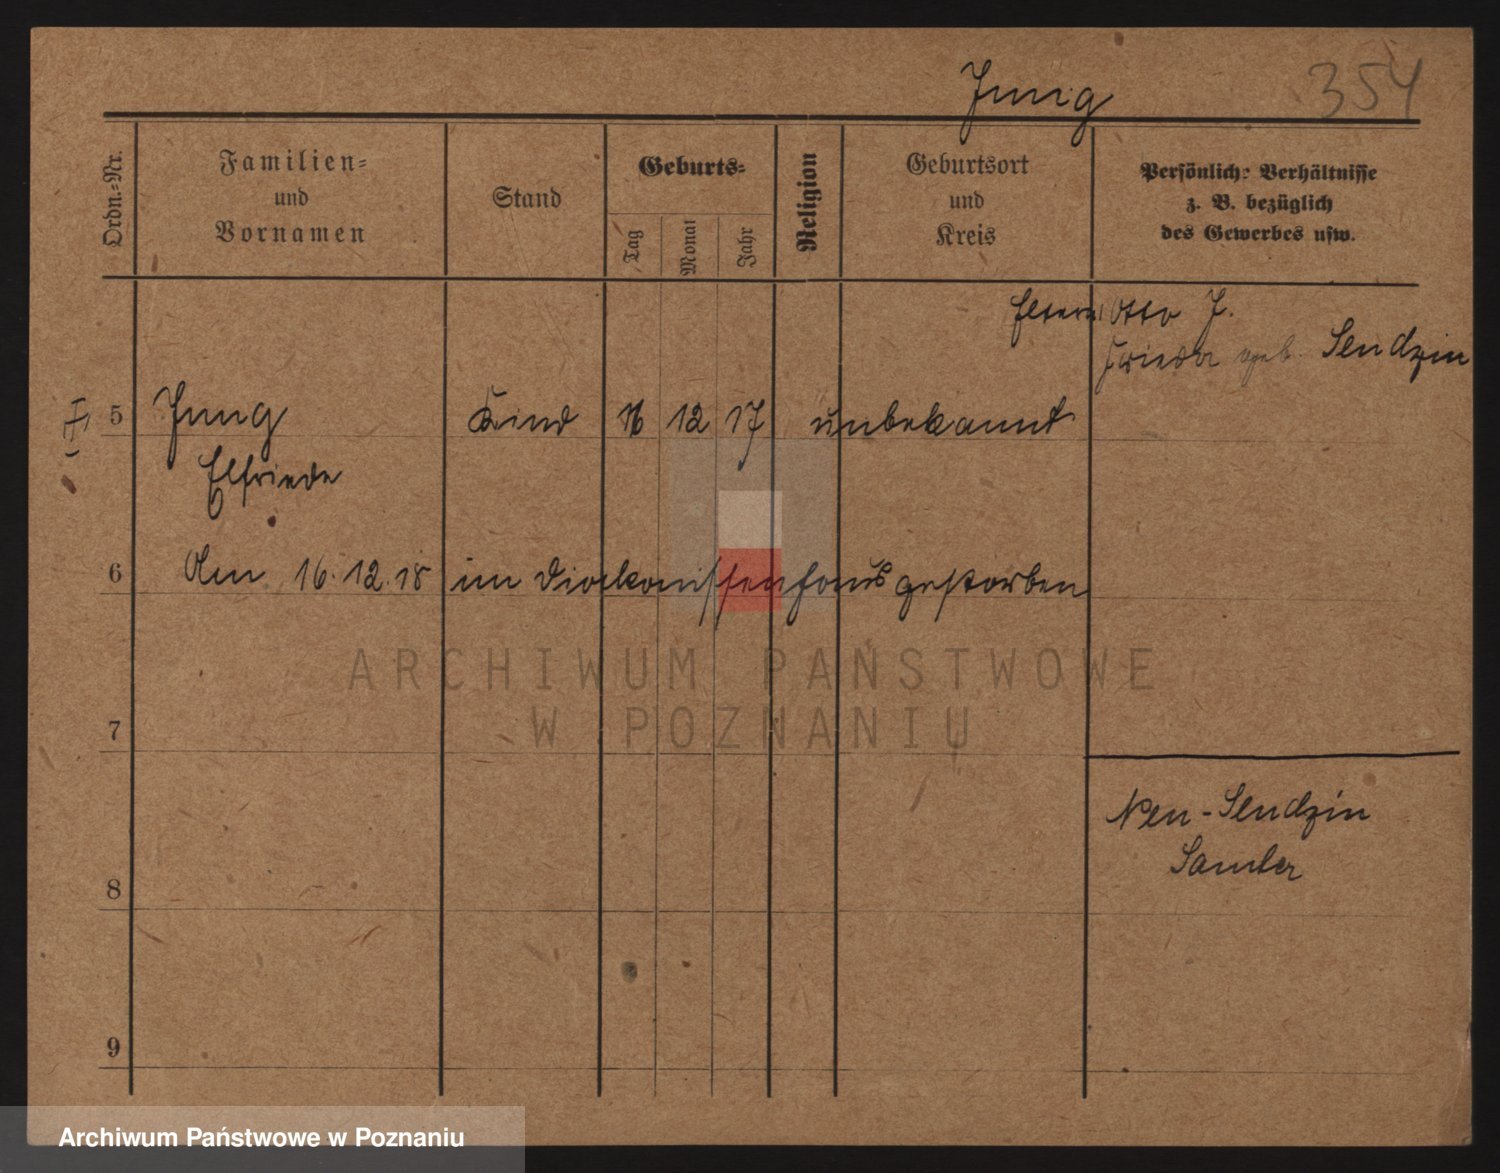 Jung 354
Ordn.=Nr.
Familien=
und
Vornamen
Stand
Geburts=
Tag
Monat
Jahr
Religion
Geburtsort
und
Kreis
Persönlich. Verhältnisse
z. B. bezüglich
des Gewerbes usw.
Eltern Otto J.
Frieda geb. Sendzin
5 Jung Kind 16 12 17 unbekannt
Elfriede
6 Am 16.12.18 im Diakonissenhaus gestorben
ARCHIWUM PAŃSTWOWE
W POZNANIU
7
Neu-Sendzin
Samter
8
9
Archiwum Państwowe w Poznaniu